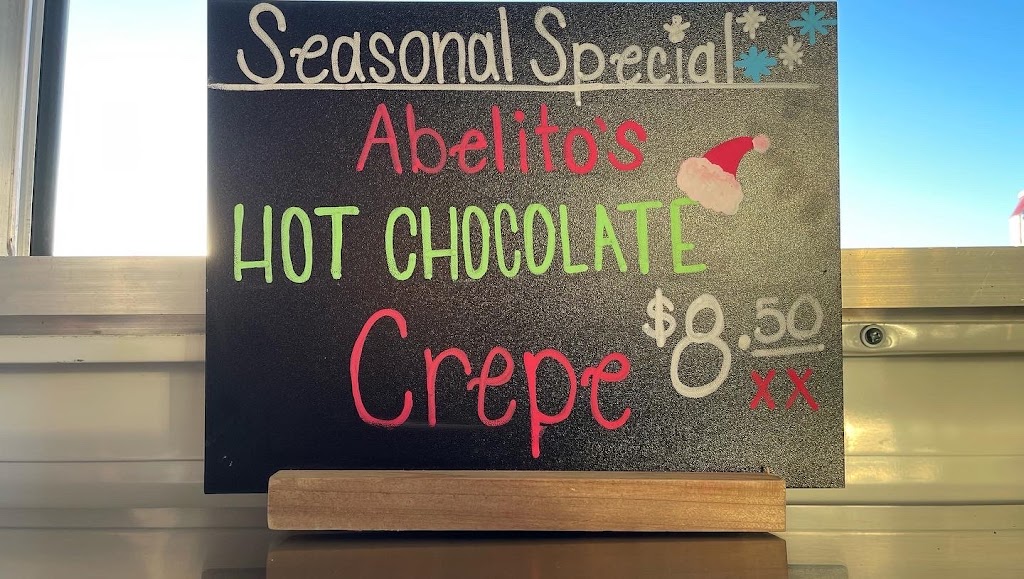 Seasonal Special
Abelito's
HOT CHOCOLATE
Crepe
$8.50
XX